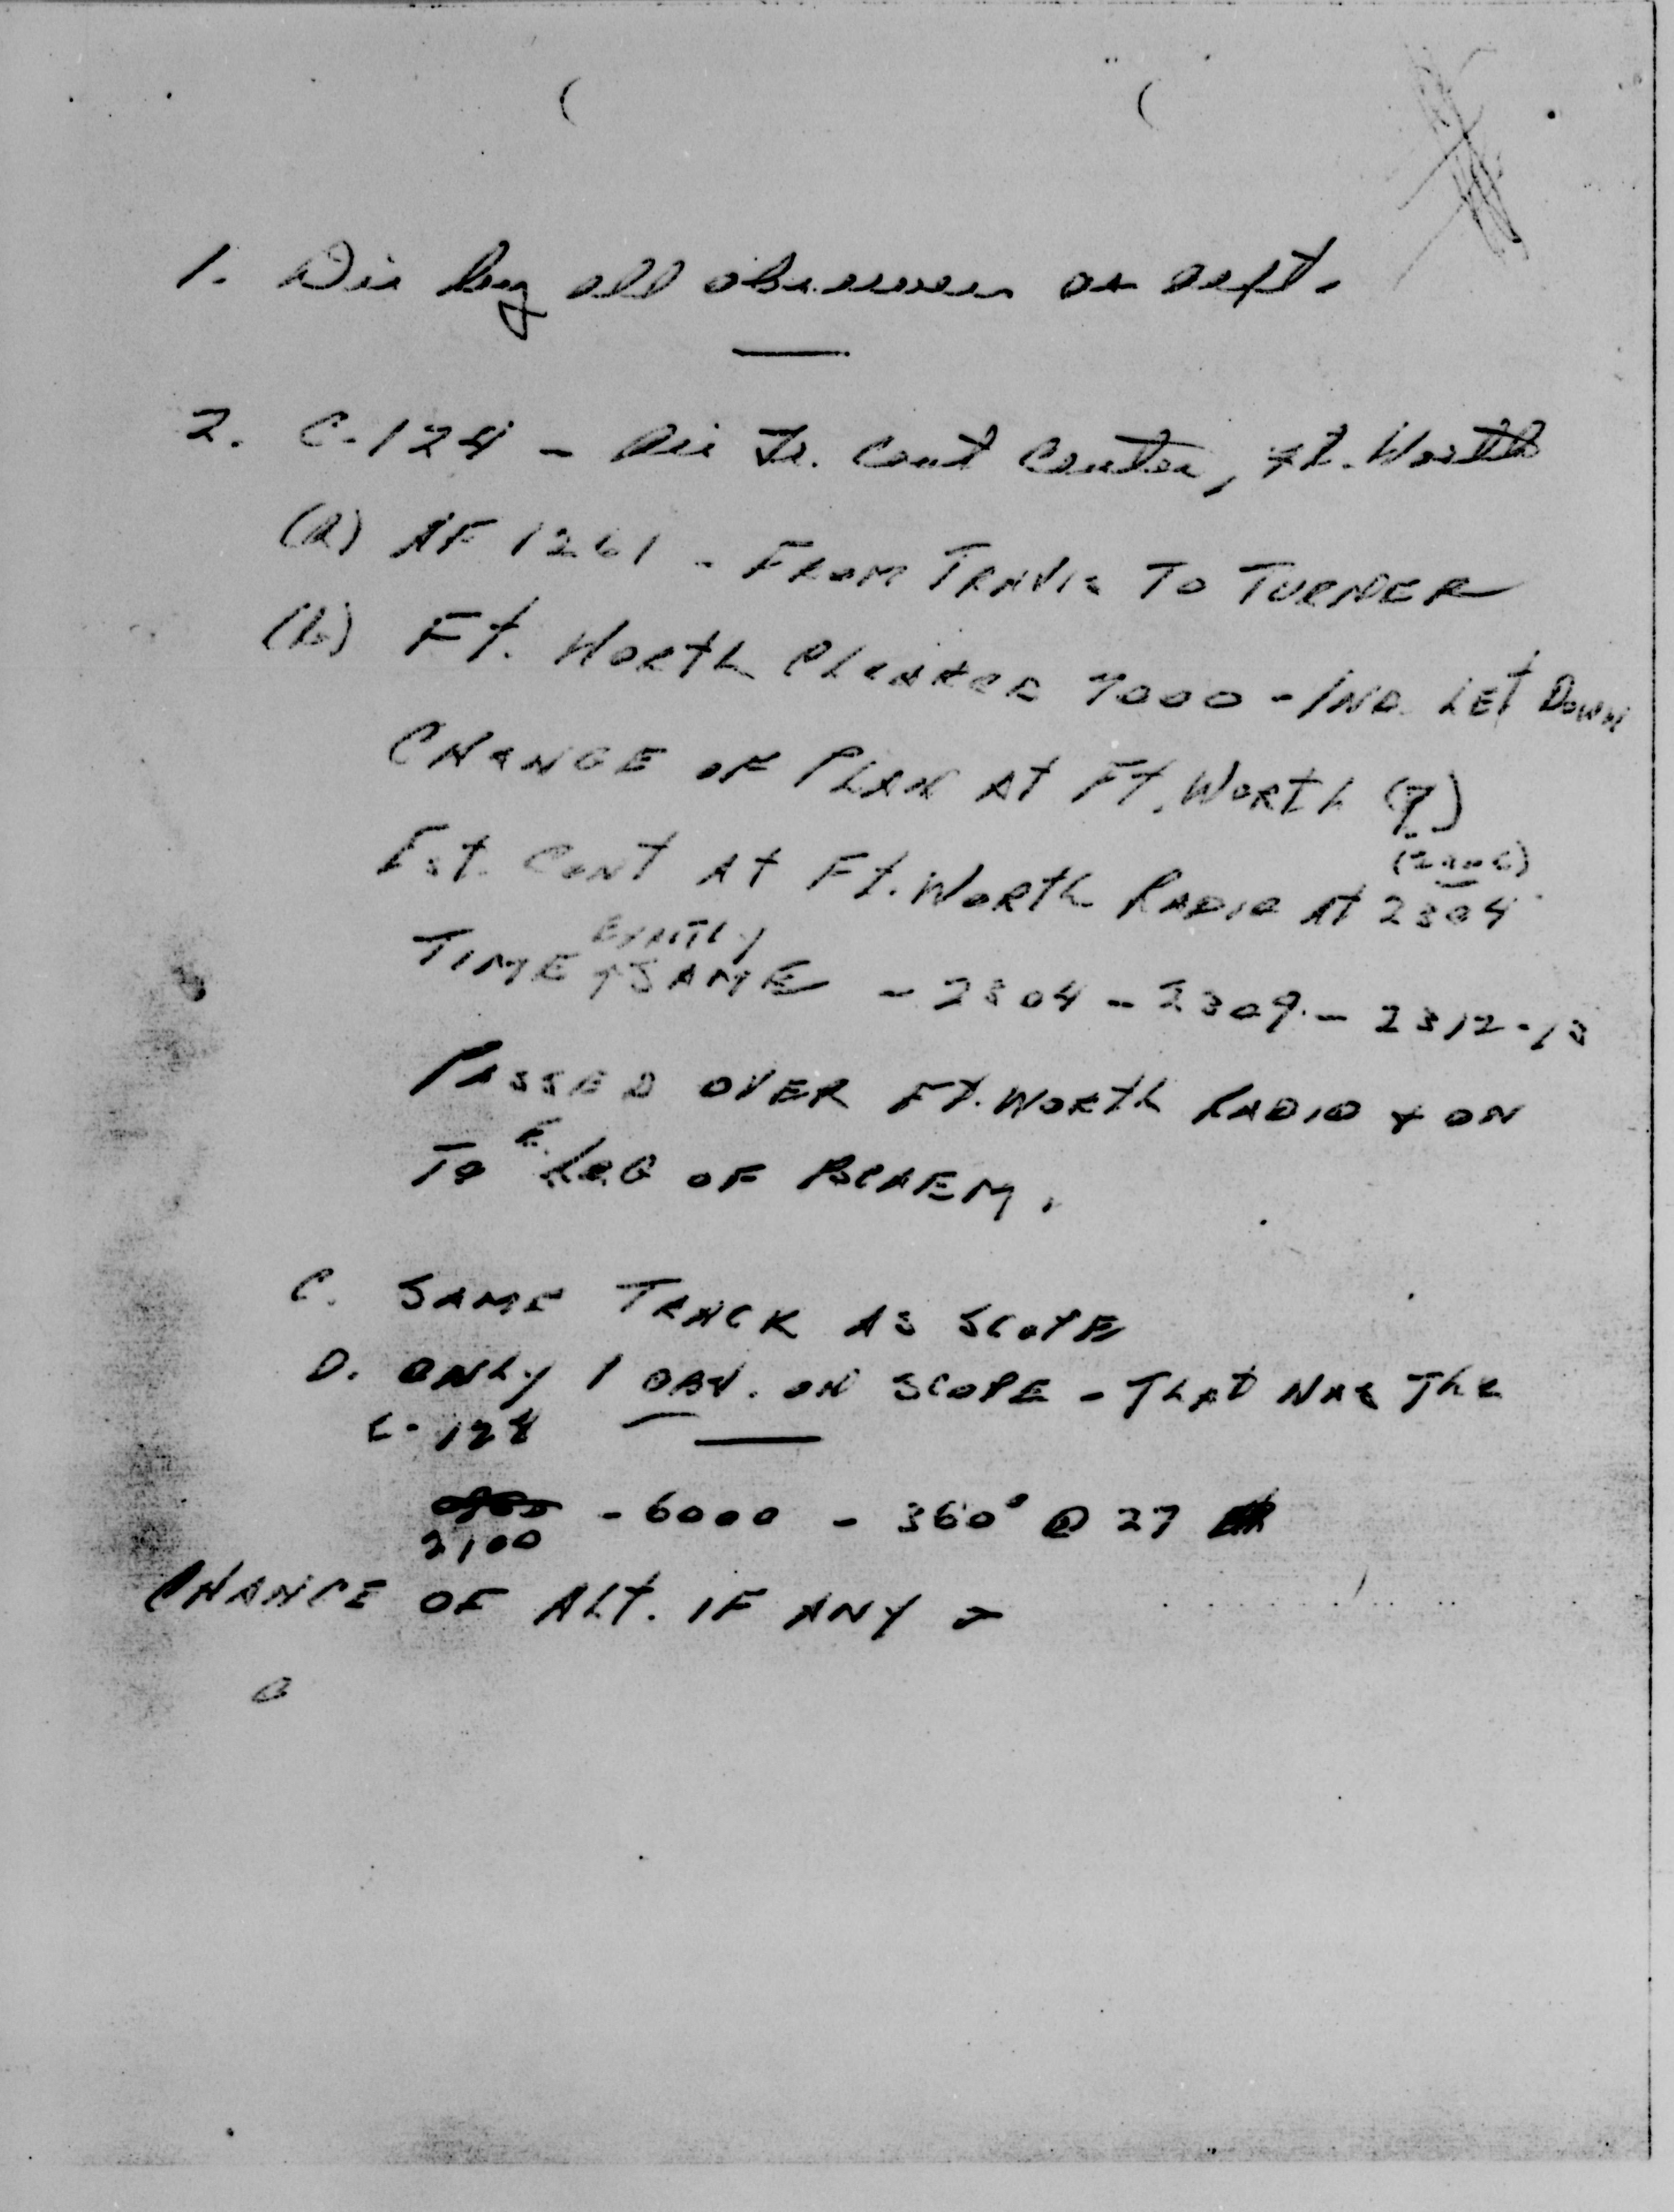 1. Dir by all observers as
2. C-124 - Air Tr. Cont Center, Ft. Worth
(a) AF 1261 - FROM TRAVIS TO TURNER
(b) Ft. WORTH CLEARED 7000 - IND. LET DOWN
CHANGE OF PLAN AT Ft. WORTH (?)
Est. CONT At Ft. WORTH RADIO At 2304
EXACTLY
TIME SAME - 2304 - 2309 - 2312-13
PASSED OVER Ft. WORTH RADIO & ON
TO E. LEG OF
C. SAME TRACK AS SCOPE
D. ONLY 1 OBJ. ON SCOPE - THAT WAS The
C-124
- 6000 - 360° @ 27
2100
CHANGE OF ALT. IF ANY